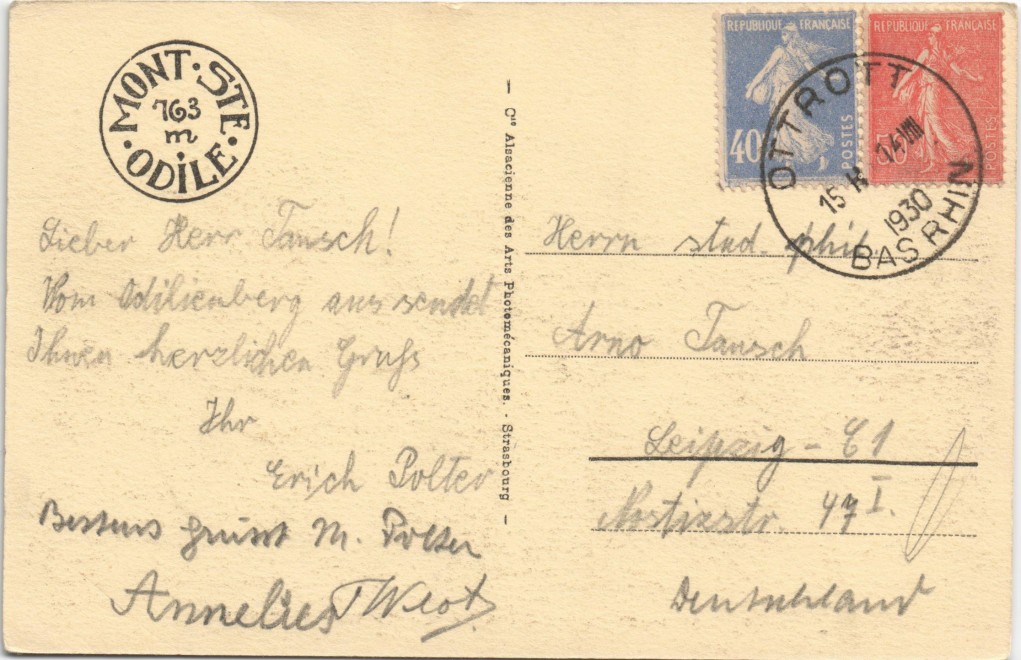 MONT · STE · ODILE ·
763
m
Lieber Herr Tausch!
Vom Odilienberg aus sendet
Ihnen herzlichen Gruß
Ihr
Erich Polter
Bestens grüsst M. Polter
Annelies
— Cie Alsacienne des Arts Photomécaniques. - Strasbourg —
REPUBLIQUE FRANÇAISE
40
POSTES
REPUBLIQUE FRANÇAISE
50
POSTES
OTTROTT
15 H
14 VIII
1930
BAS RHIN
Herrn stud. phil
Arno Tausch
Leipzig - C1
Nostizstr. 47 I.
Deutschland